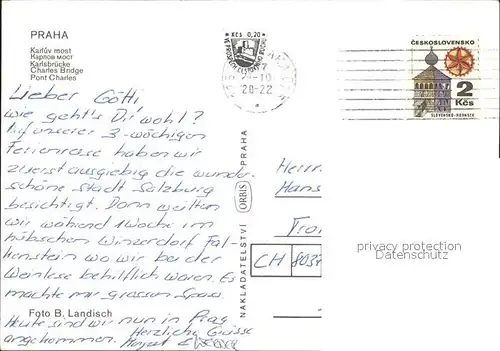 PRAHA
Karlův most
Карлов мост
Karlsbrücke
Charles Bridge
Pont Charles
Kčs 0,20
20-22
ČESKOSLOVENSKO
2
Kčs
SLOVENSKO-HRONSEK
Lieber Götti,
wie geht's Dir wohl?
Auf unserer 3-wöchigen
Ferienreise haben wir
zuerst ausgiebig die wunder-
schöne Stadt Salzburg
besichtigt. Dann weilten
wir während 1 Woche im
hübschen Winzerdorf Fal-
kenstein wo wir bei der
Weinlese behilflich waren. Es
machte mir grossen Spass.
Heute sind wir nun in Prag
angekommen. Herzliche Grüsse
Foto B. Landisch
NAKLADATELSTVÍ ORBIS PRAHA
Herrn
Hans
CH 8037
privacy protection
Datenschutz